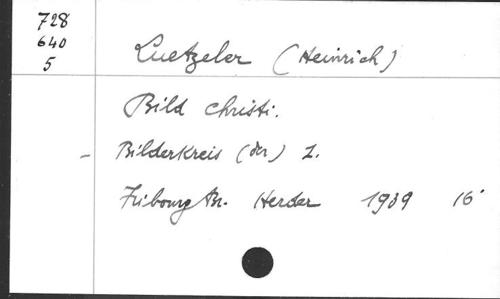 728
640
5
Luetzeler (Heinrich)
Bild Christi.
- Bilderkreis (der) 1.
Fribourg Br. Herder 1939 16°